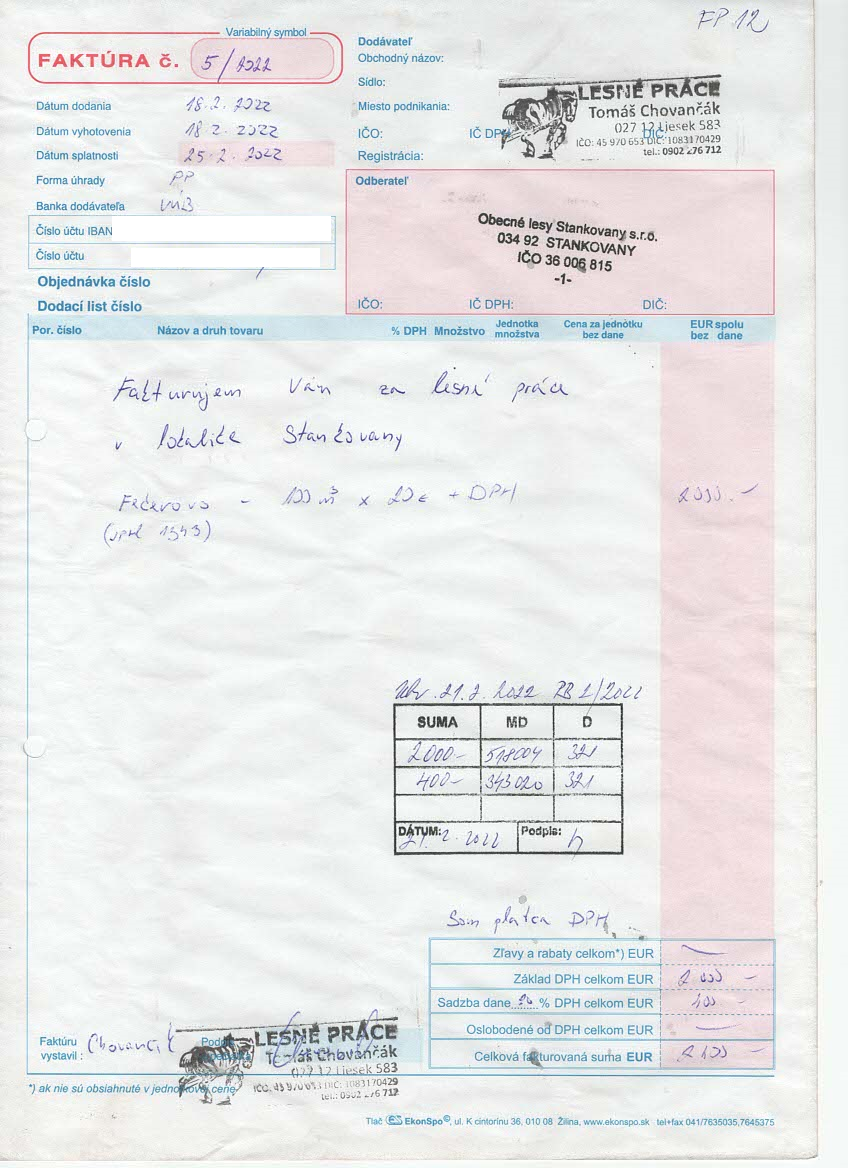 FP 12
Variabilný symbol
FAKTÚRA č. 5/2022
Dátum dodania 18.2.2022
Dátum vyhotovenia 18.2.2022
Dátum splatnosti 25.2.2022
Forma úhrady PP
Banka dodávateľa VÚB
Číslo účtu IBAN
Číslo účtu
Objednávka číslo
Dodací list číslo
Dodávateľ
Obchodný názov:
Sídlo:
Miesto podnikania:
IČO: IČ DPH: DIČ:
Registrácia:
LESNÉ PRÁCE
Tomáš Chovančák
027 12 Liesek 583
IČO: 45 970 653 DIČ: 1083170429
tel.: 0902 276 712
Odberateľ
Obecné lesy Stankovany s.r.o.
034 92 STANKOVANY
IČO 36 006 815
-1-
IČO: IČ DPH: DIČ:
Por. číslo Názov a druh tovaru % DPH Množstvo Jednotka množstva Cena za jednotku bez dane EUR spolu bez dane
Fakturujem Vám za lesné práce
v lokalite Stankovany
- 100 m³ x 20 € + DPH 2000.-
21.2.2022
SUMA MD D
2000- 518004 321
400- 343020 321
DÁTUM: 21.2.2022 Podpis:
Som platca DPH
Zľavy a rabaty celkom*) EUR —
Základ DPH celkom EUR 2000 -
Sadzba dane 20 % DPH celkom EUR 400 -
Oslobodené od DPH celkom EUR —
Celková fakturovaná suma EUR 2400 -
Faktúru vystavil : Chovančák
LESNÉ PRÁCE
Tomáš Chovančák
027 12 Liesek 583
IČO: 45 970 653 DIČ: 1083170429
tel.: 0902 276 712
*) ak nie sú obsiahnuté v jednotkovej cene
Tlač EkonSpo©, ul. K cintorínu 36, 010 08 Žilina, www.ekonspo.sk tel+fax 041/7635035,7645375